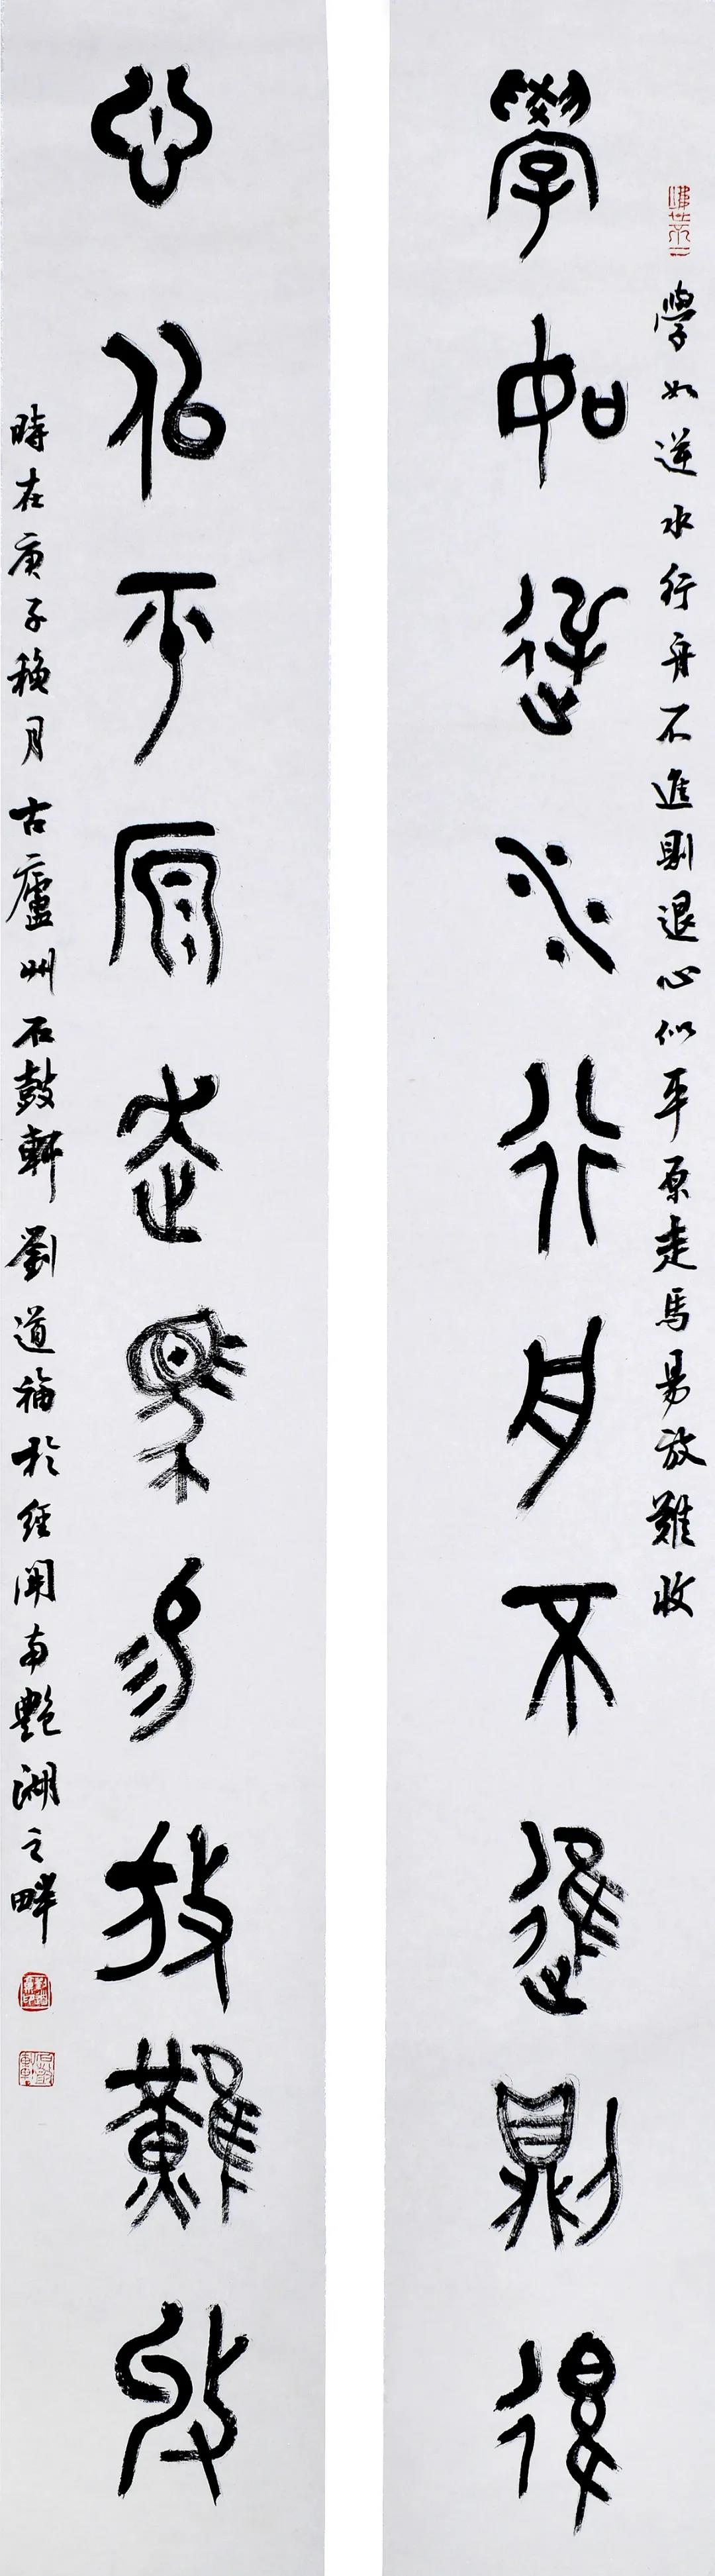 學如逆水行舟不進則退心似平原走馬易放難收
學如逆水行舟不進則退
心似平原走馬易放難收
時在庚子穐月古廬州石鼓軒劉道福於經開南艷湖之畔